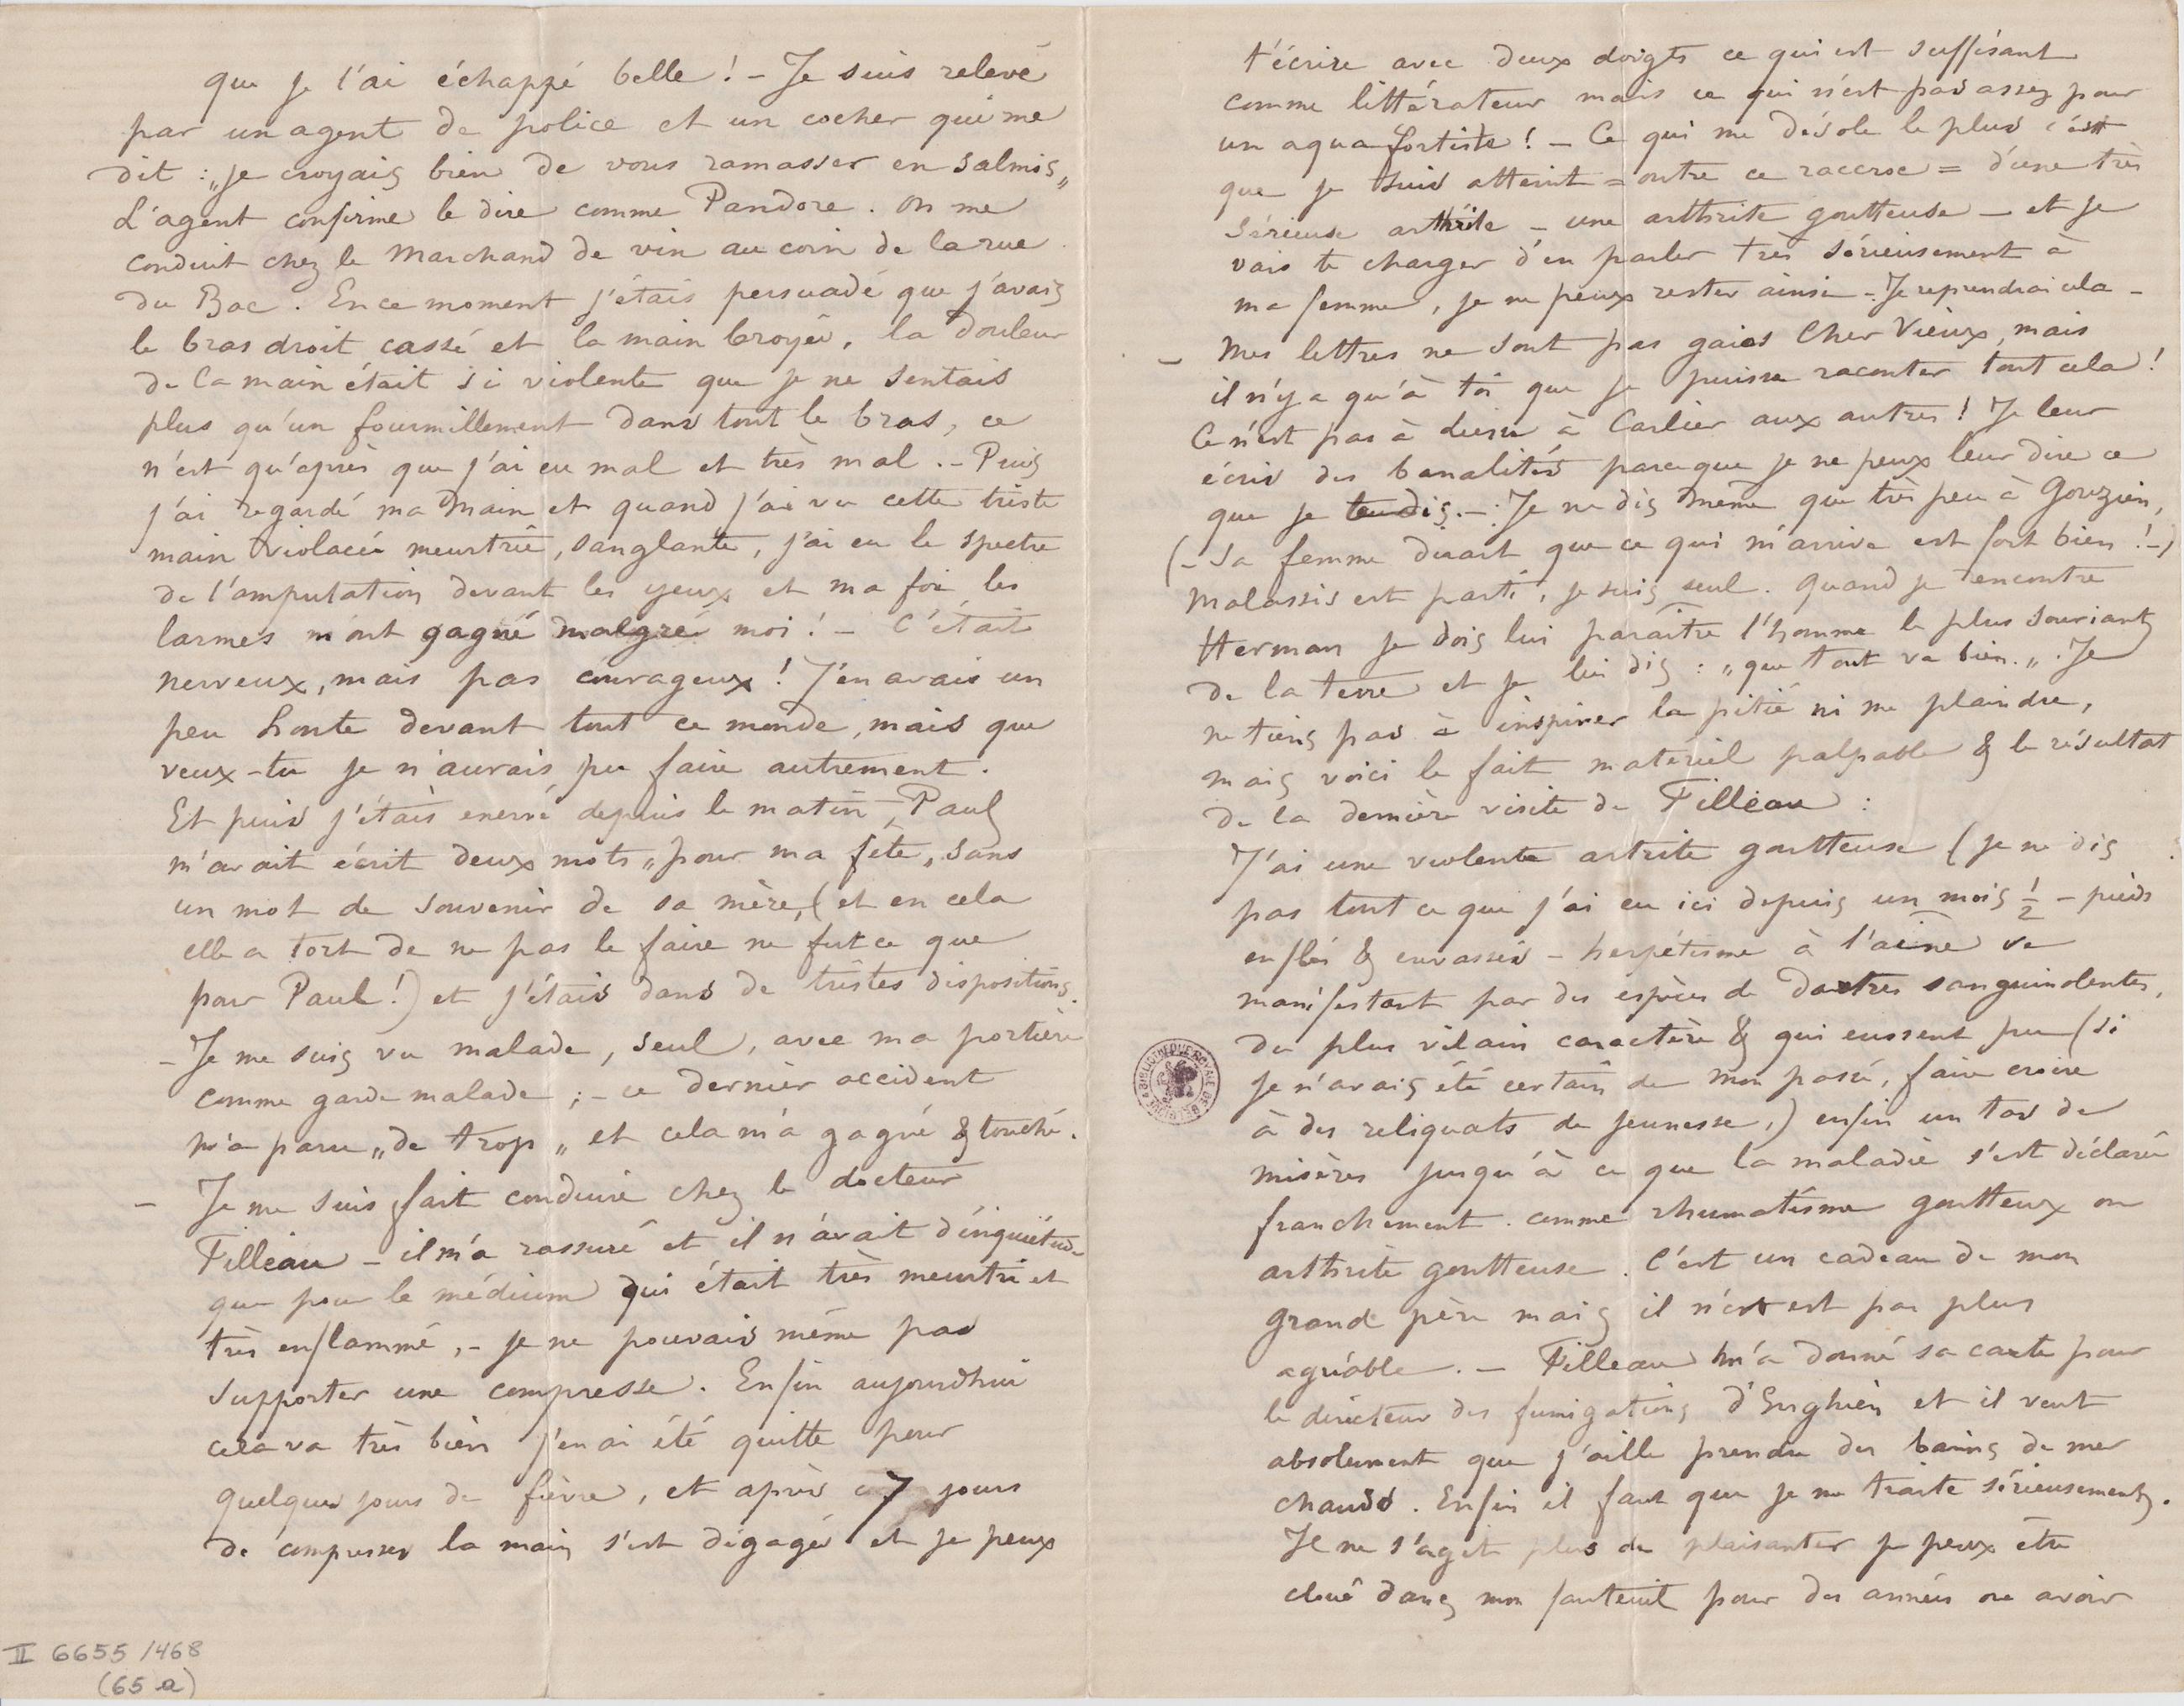 que je l'ai échappé belle ! – Je suis relevé
par un agent de police et un cocher qui me
dit : „je croyais bien de vous ramasser en salmis„
L'agent confirme le dire comme Pandore. On me
conduit chez le Marchand de vin au coin de la rue
du Bac. En ce moment j'étais persuadé que j'avais
le bras droit cassé et la main broyée, la douleur
de la main était si violente que je ne sentais
plus qu'un fourmillement dans tout le bras, ce
n'est qu'après que j'ai eu mal et très mal. – Puis
j'ai regardé ma main et quand j'ai vu cette triste
main violacée meurtrie, sanglante, j'ai eu le spectre
de l'amputation devant les yeux et ma foi les
larmes m'ont gagné malgré moi ! – C'était
nerveux, mais pas courageux ! J'en avais un
peu honte devant tout ce monde, mais que
veux-tu je n'aurais pu faire autrement.
Et puis j'étais enervé depuis le matin, Paul
m'avait écrit deux mots „pour ma fête„ sans
un mot de souvenir de sa mère, (et en cela
elle a tort de ne pas le faire ne fut ce que
pour Paul !) et j'étais dans de tristes dispositions.
– Je me suis vu malade, seul, avec ma portière
comme garde malade ; – ce dernier accident
m'a paru „de trop„ et cela m'a gagné & touché.
– Je me suis fait conduire chez le docteur
Filleau – il m'a rassuré et il n'avait d'inquiétude
que pour le médium qui était très meurtri et
très enflammé, – je ne pouvais même pas
supporter une compresse. Enfin aujourdhui
cela va très bien j'en ai été quitte pour
quelques jours de fièvre, et après 7 jours
de compresses la main s'est dégagée et je peux
II 6655 /468
(65 a)
t'écrire avec deux doigts ce qui est suffisant
comme littérateur mais ce qui n'est pas assez pour
un aquafortiste ! – Ce qui me désole le plus c'est
que je suis atteint = outre ce raccroc = d'une très
sérieuse arthrite – une arthrite goutteuse – et je
vais te charger d'en parler très sérieusement à
ma femme, je ne peux rester ainsi – Je reprendrai cela –
– Mes lettres ne sont pas gaies Cher Vieux, mais
il n'y a qu'à toi que je puisse raconter tout cela !
Ce n'est pas à Liesse à Carlier aux autres ! Je leur
écris des banalités parceque je ne peux leur dire ce
que je te dis. – Je ne dis même que très peu à Gouzien,
(– Sa femme disait que ce qui m'arrive est fort bien ! –)
Malassis est parti, je suis seul. Quand je rencontre
Herman je dois lui paraître l'homme le plus souriant
de la terre et je lui dis : „que tout va bien.„ Je
ne tiens pas à inspirer la pitié ni me plaindre,
mais voici le fait matériel palpable & le résultat
de la dernière visite de Filleau :
J'ai une violente artrite goutteuse (je ne dis
pas tout ce que j'ai eu ici depuis un mois ½ – pieds
enflés & – herpétisme à l'aine se
manifestant par des espèces de dartres sanguinolentes,
du plus vilain caractère & qui eussent pu (si
je n'avais été certain de mon passé, faire croire
à des reliquats de jeunesse,) enfin un tas de
misères jusqu'à ce que la maladie s'est déclarée
franchement. comme rhumatisme goutteux ou
arthrite goutteuse. C'est un cadeau de mon
grand père mais il n'est par plus
agréable. – Filleau m'a donné sa carte pour
le directeur des fumigations d'Enghien et il veut
absolument que j'aille prendre des bains de mer
chauds. Enfin il faut que je me traite sérieusement.
Il ne s'agit plus de plaisanter je peux être
cloué dans mon fauteuil pour des années ou avoir